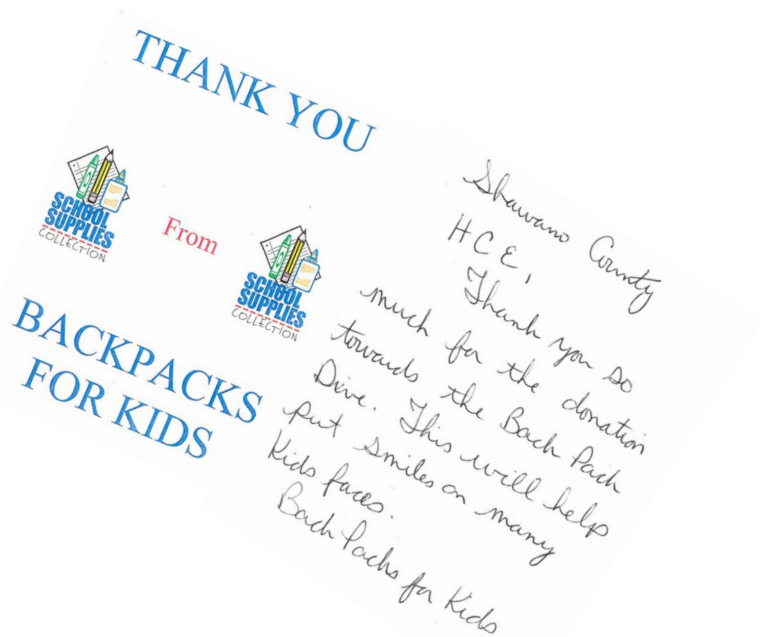 THANK YOU
SCHOOL
SUPPLIES
COLLECTION
From
SCHOOL
SUPPLIES
COLLECTION
BACKPACKS
FOR KIDS
Shawano County
HCE,
Thank you so
much for the donation
towards the Back Pack
Dive. This will help
put smiles on many
Kids faces.
Back Packs for Kids